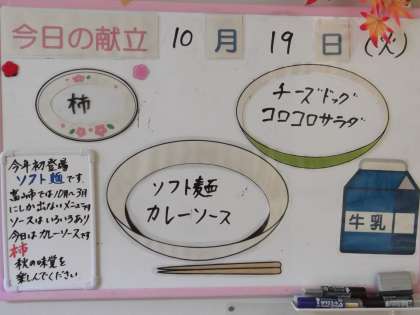 今日の献立 10月19日(火)
柿
チーズドッグ
コロコロサラダ
ソフト麺
カレーソース
牛乳
今年初登場
ソフト麺です
富山市では10月〜3月
にしか出ないメニューです
ソースはいろいろあり
今日はカレーソースです
柿
秋の味覚を
楽しんでください